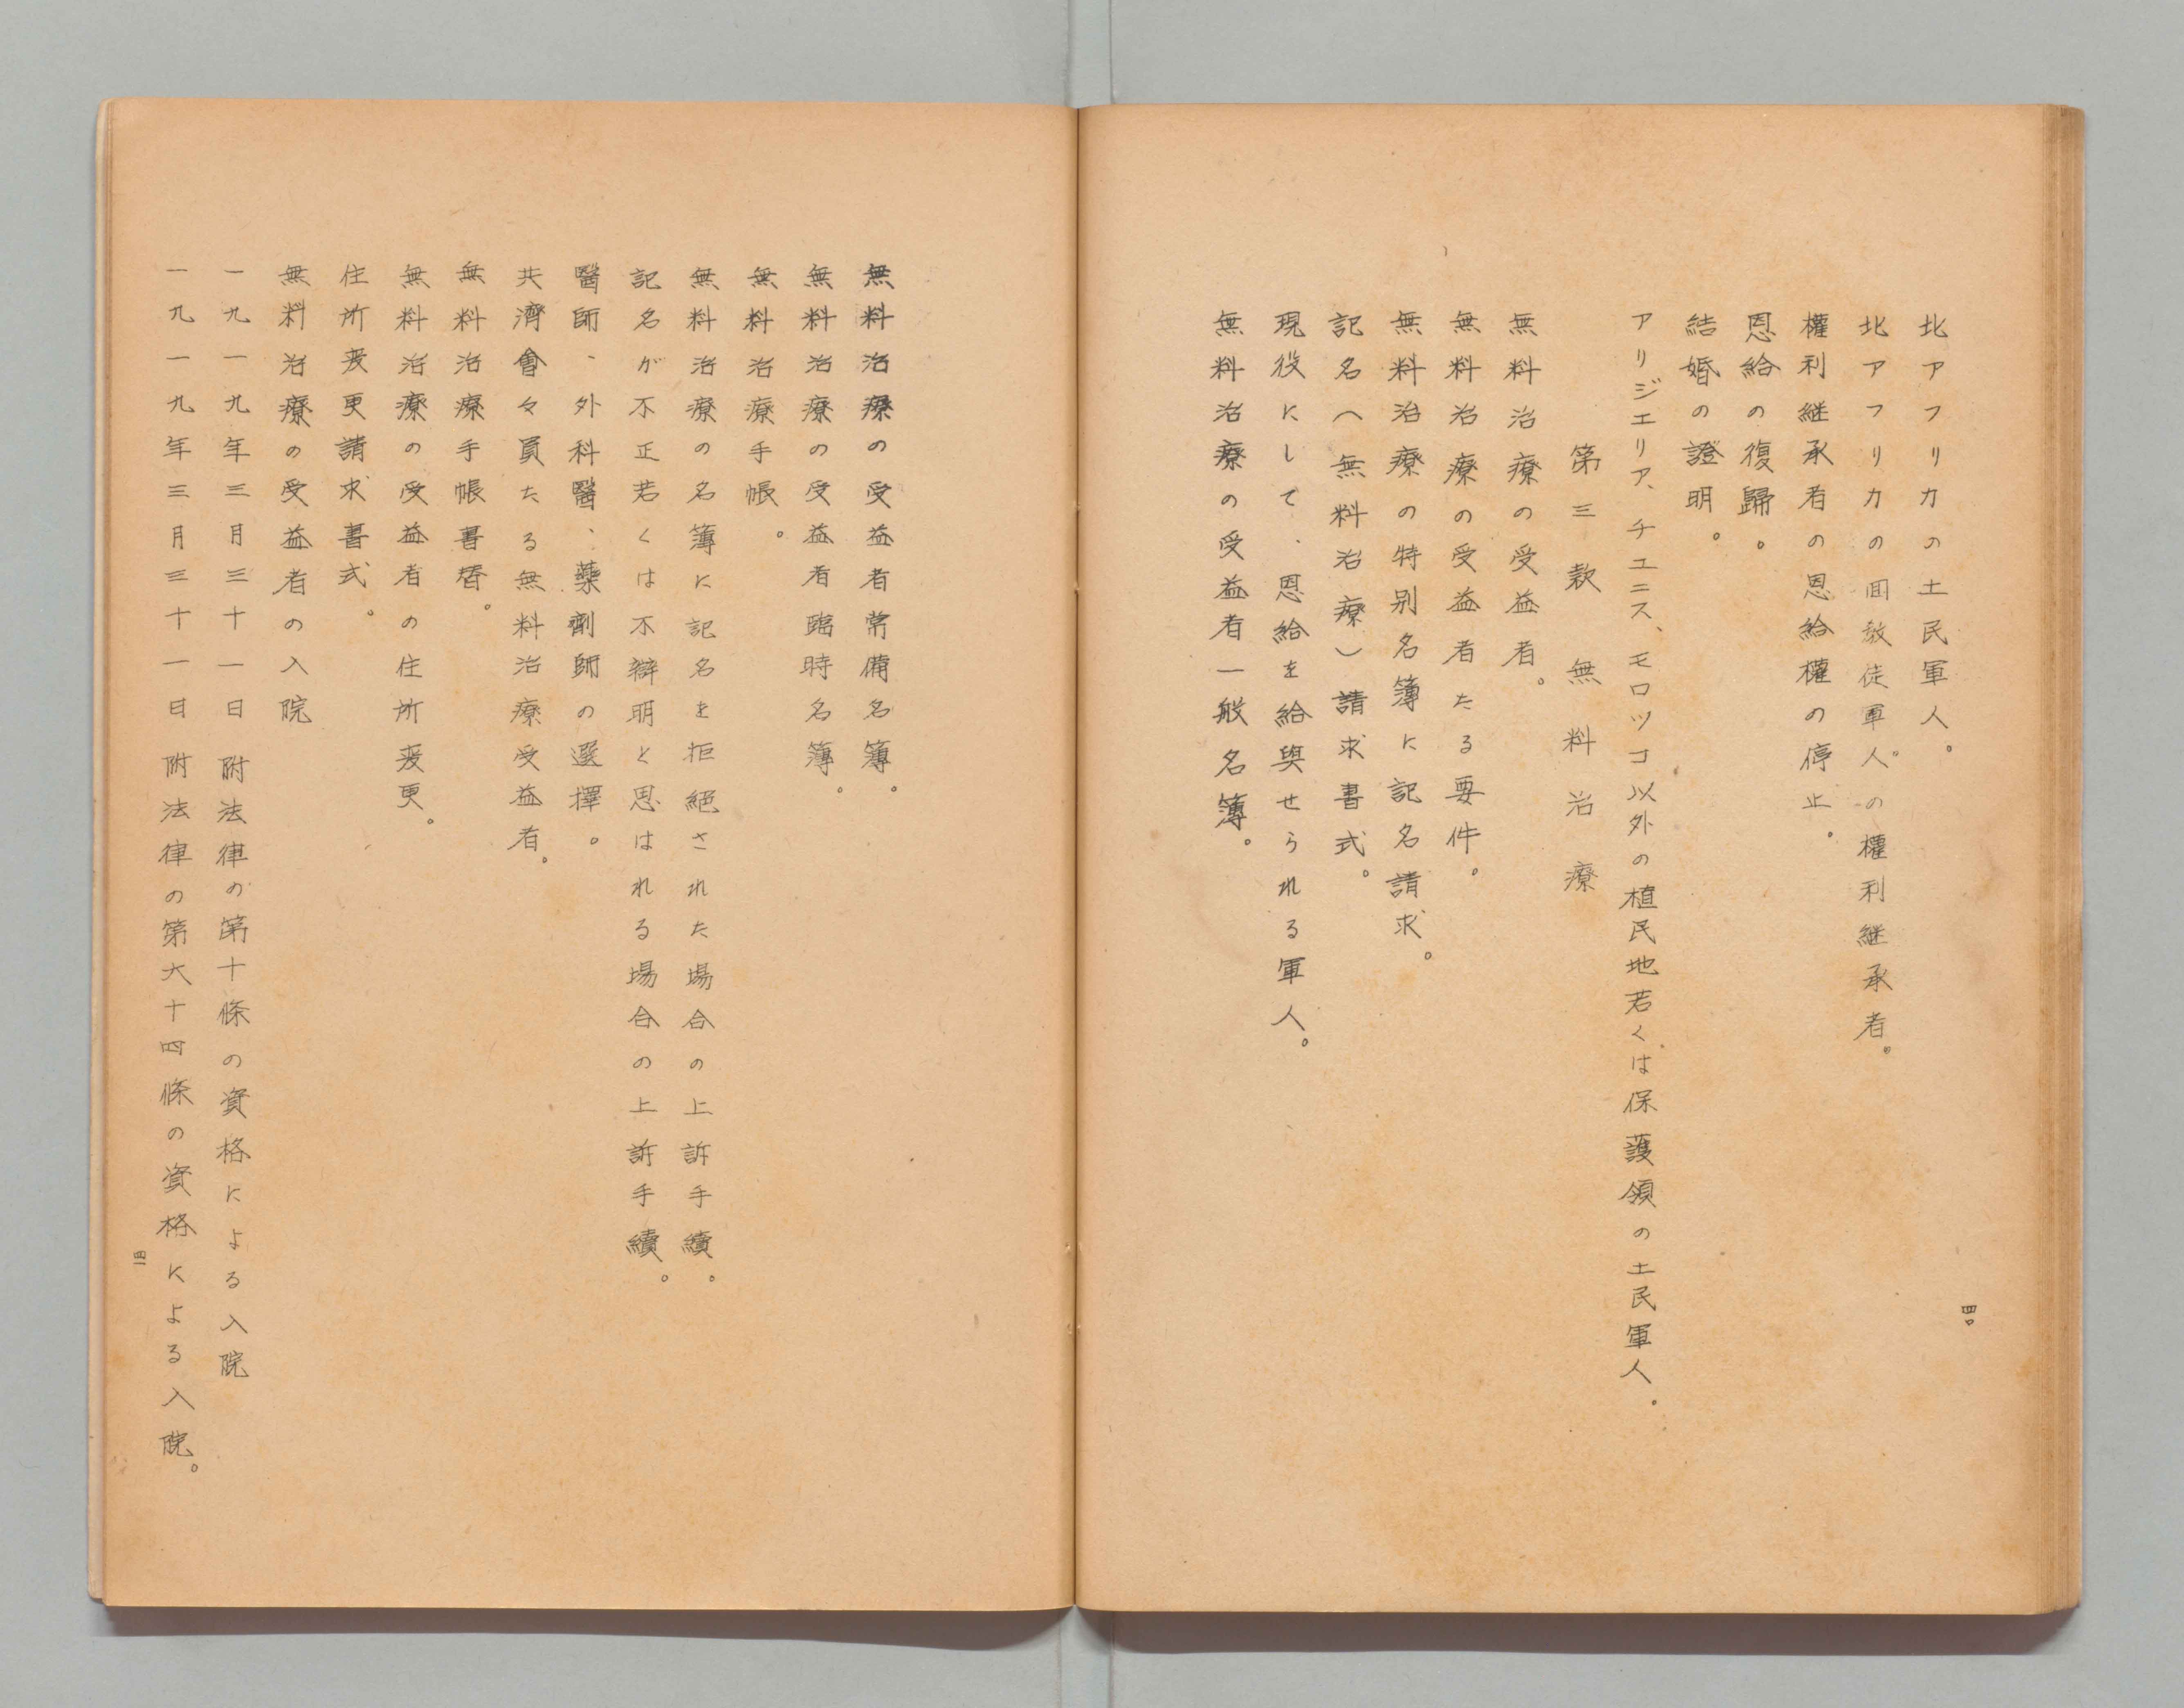 北アフリカの土民軍人。
北アフリカの囬敎徒軍人。の權利継承者。
權利継承者の恩給權の停止。
恩給の復歸。
結婚の證明。
アリジエリア、チユニス、モロツコ以外の植民地若くは保護領の土民軍人。
第三款 無料治療
無料治療の受益者。
無料治療の受益者たる要件。
無料治療の特別名簿に記名請求。
記名(無料治療)請求書式。
現役にして、恩給を給與せられる軍人。
無料治療の受益者一般名簿。
四〇
無料治療の受益者常備名簿。
無料治療の受益者臨時名簿。
無料治療手帳。
無料治療の名簿に記名を拒絕された場合の上訴手續。
記名が不正若くは不辯明と思はれる場合の上訴手續。
醫師、外科醫、藥劑師の選擇。
共濟會々員たる無料治療受益者。
無料治療手帳書替。
無料治療の受益者の住所変更。
住所変更請求書式。
無料治療の受益者の入院
一九一九年三月三十一日 附法律の第十條の資格による入院
一九一九年三月三十一日 附法律の第六十四條の資格による入院。
四一